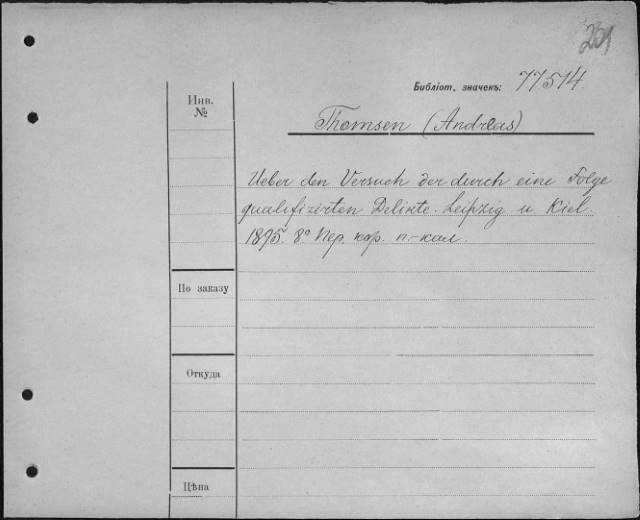 231
Библіот. значекъ: 77514.
Инв.
№
Thomsen (Andreas)
Ueber den Versuch der durch eine Folge
qualifizirten Delikte. Leipzig u. Kiel.
1895. 8° Пер. кор. п.-кал.
По заказу
Откуда
Цѣна